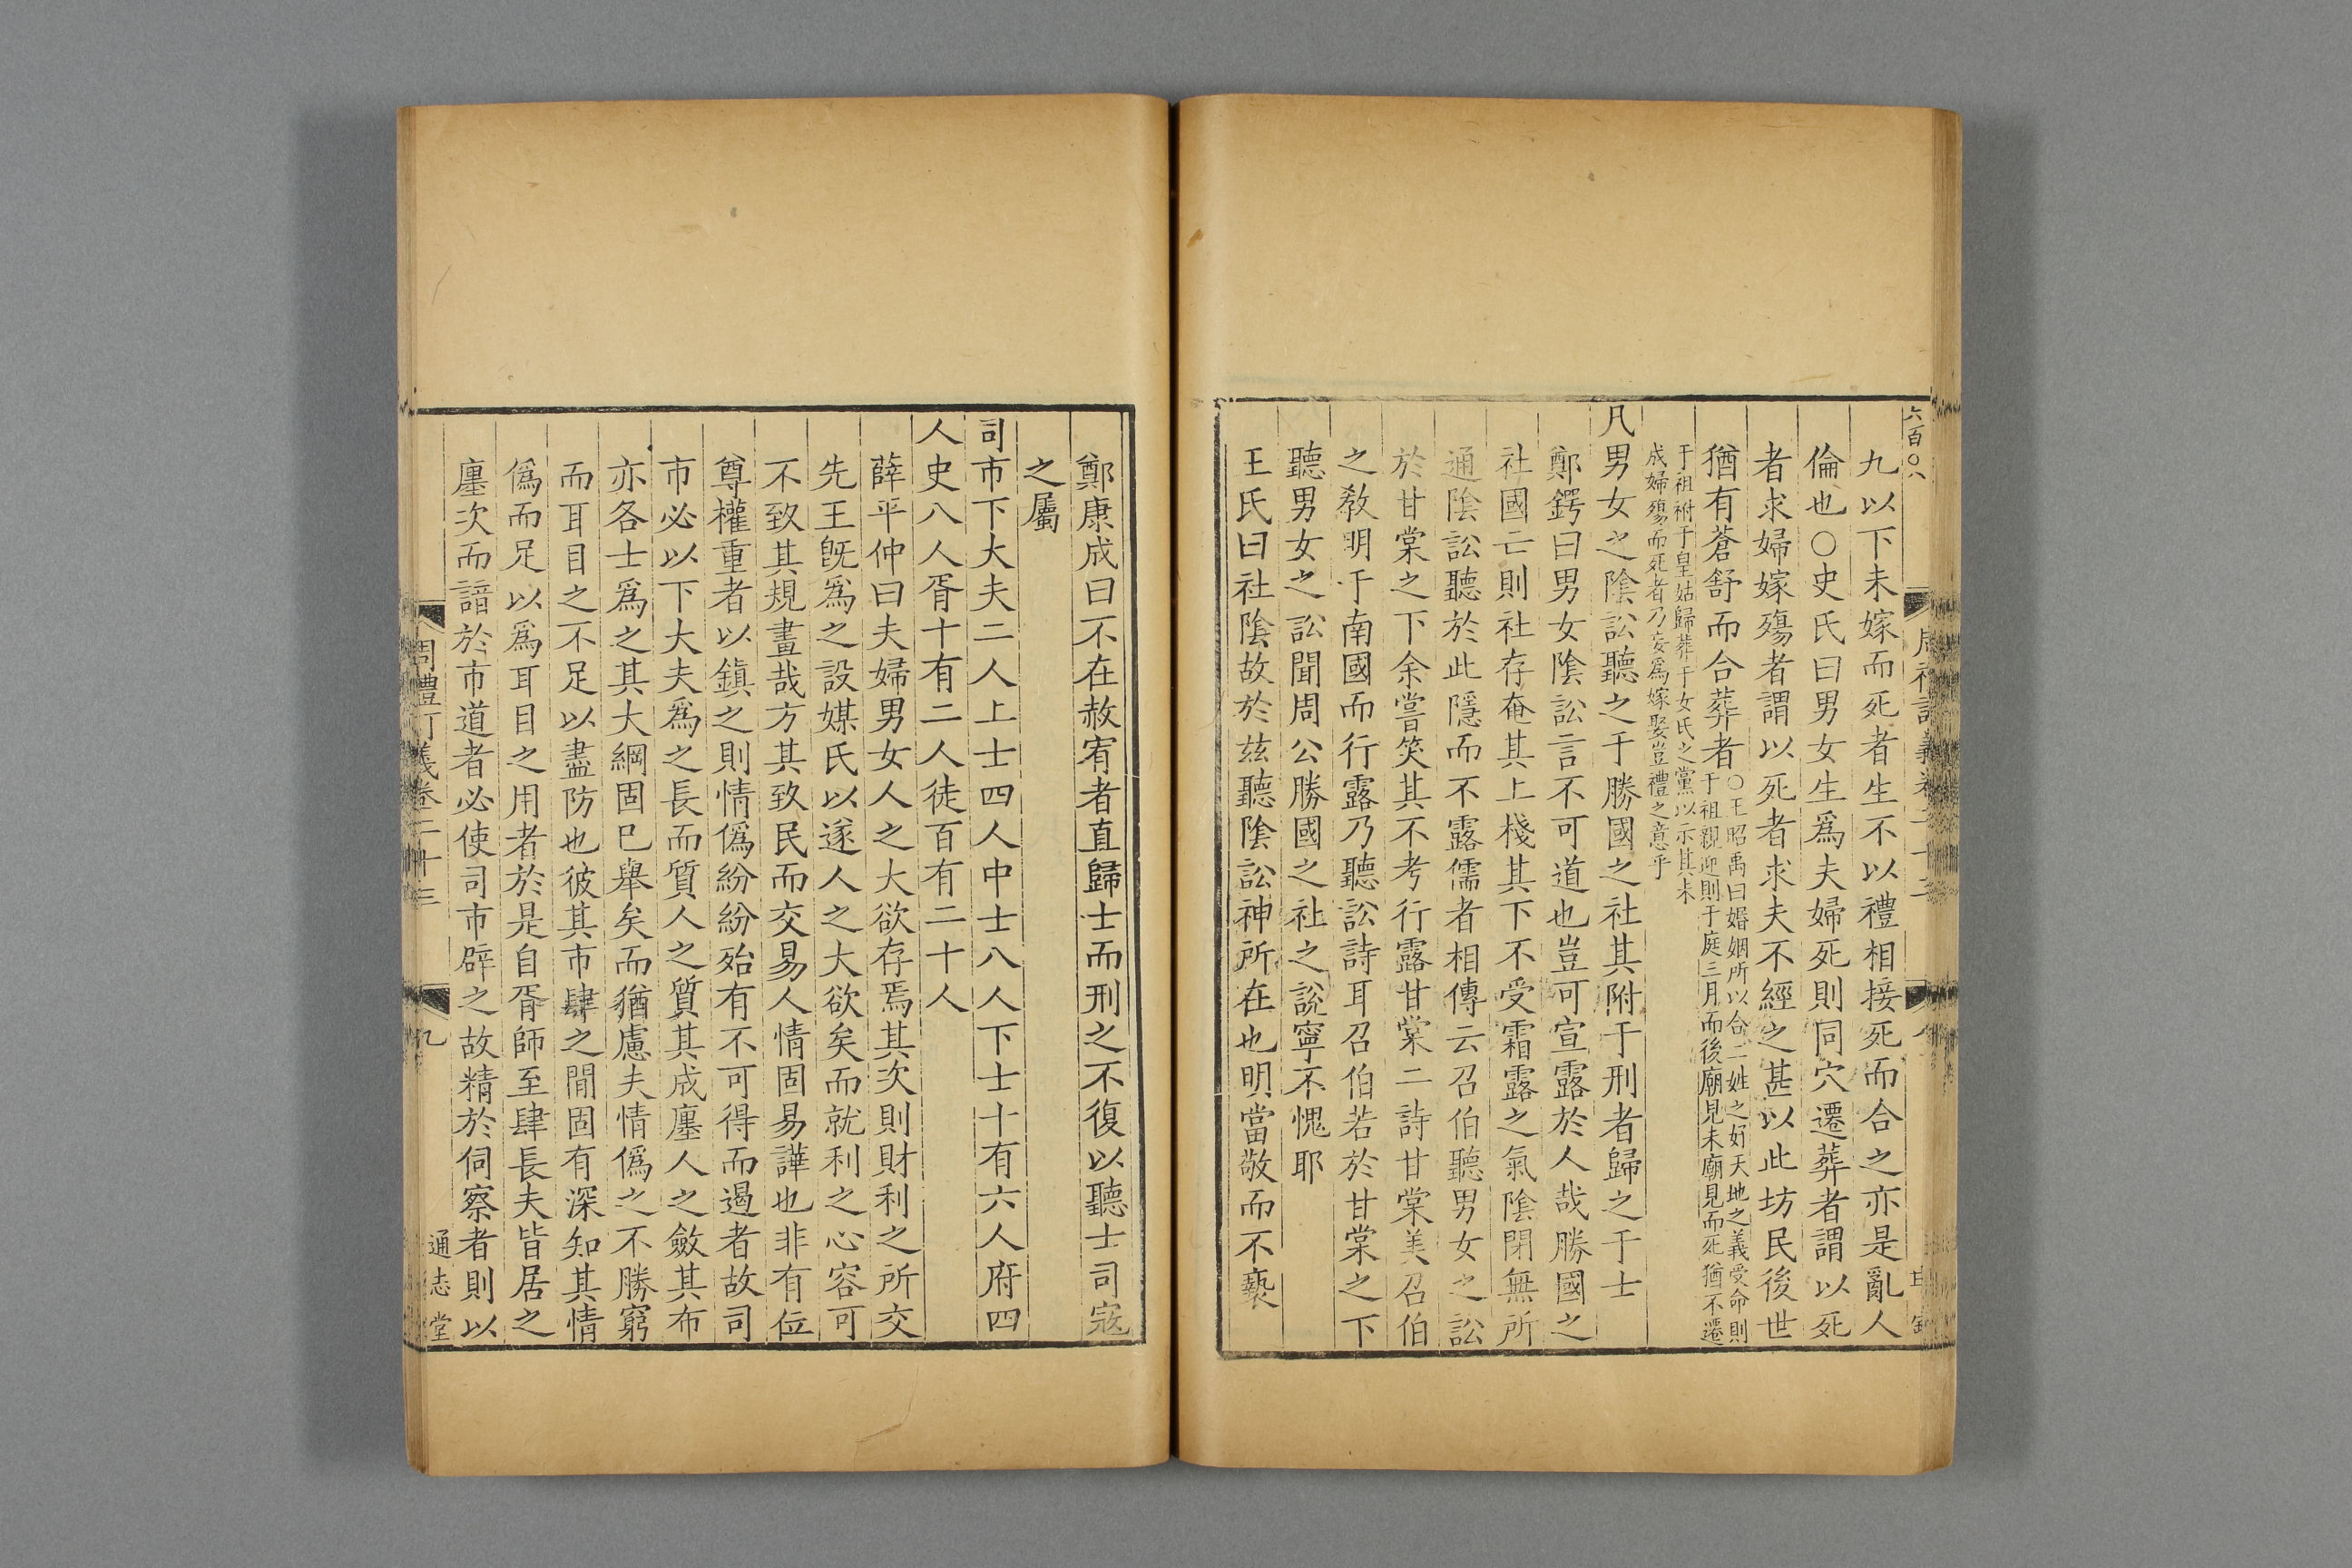 六百〇八
九以下未嫁而死者生不以禮相接死而合之亦是亂人
倫也○史氏曰男女生爲夫婦死則同穴遷葬者謂以死
者求婦嫁殤者謂以死者求夫不經之甚以此坊民後世
猶有蒼舒而合葬者
○王昭禹曰婚姻所以合二姓之好天地之義受命則
于祖親迎則于庭三月而後廟見未廟見而死猶不遷
于祖祔于皇姑歸葬于女氏之黨以示其未
成婦殤而死者乃妄爲嫁娶豈禮之意乎
凡男女之陰訟聽之于勝國之社其附于刑者歸之于士
鄭鍔曰男女陰訟言不可道也豈可宣露於人哉勝國之
社國亡則社存奄其上棧其下不受霜露之氣陰閉無所
通陰訟聽於此隱而不露儒者相傳云召伯聽男女之訟
於甘棠之下余嘗笑其不考行露甘棠二詩甘棠美召伯
之敎明于南國而行露乃聽訟詩耳召伯若於甘棠之下
聽男女之訟聞周公勝國之社之說寧不愧耶
王氏曰社陰故於玆聽陰訟神所在也明當敬而不褻
鄭康成曰不在赦宥者直歸士而刑之不復以聽士司寇
之屬
司市下大夫二人上士四人中士八人下士十有六人府四
人史八人胥十有二人徒百有二十人
薛平仲曰夫婦男女人之大欲存焉其次則財利之所交
先王旣爲之設媒氏以遂人之大欲矣而就利之心容可
不致其規畫哉方其致民而交易人情固易譁也非有位
尊權重者以鎭之則情僞紛紛殆有不可得而遏者故司
市必以下大夫爲之長而質人之質其成廛人之斂其布
亦各士爲之其大綱固已舉矣而猶慮夫情僞之不勝窮
而耳目之不足以盡防也彼其市肆之閒固有深知其情
僞而足以爲耳目之用者於是自胥師至肆長夫皆居之
廛次而諳於市道者必使司市辟之故精於伺察者則以
周禮訂義卷二十三
九
通志堂